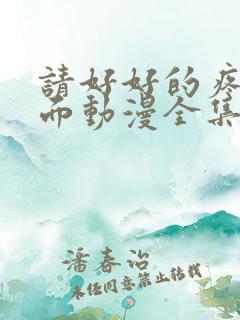 請好好的疼
而動漫全集
潘春治
未经同意禁止转载